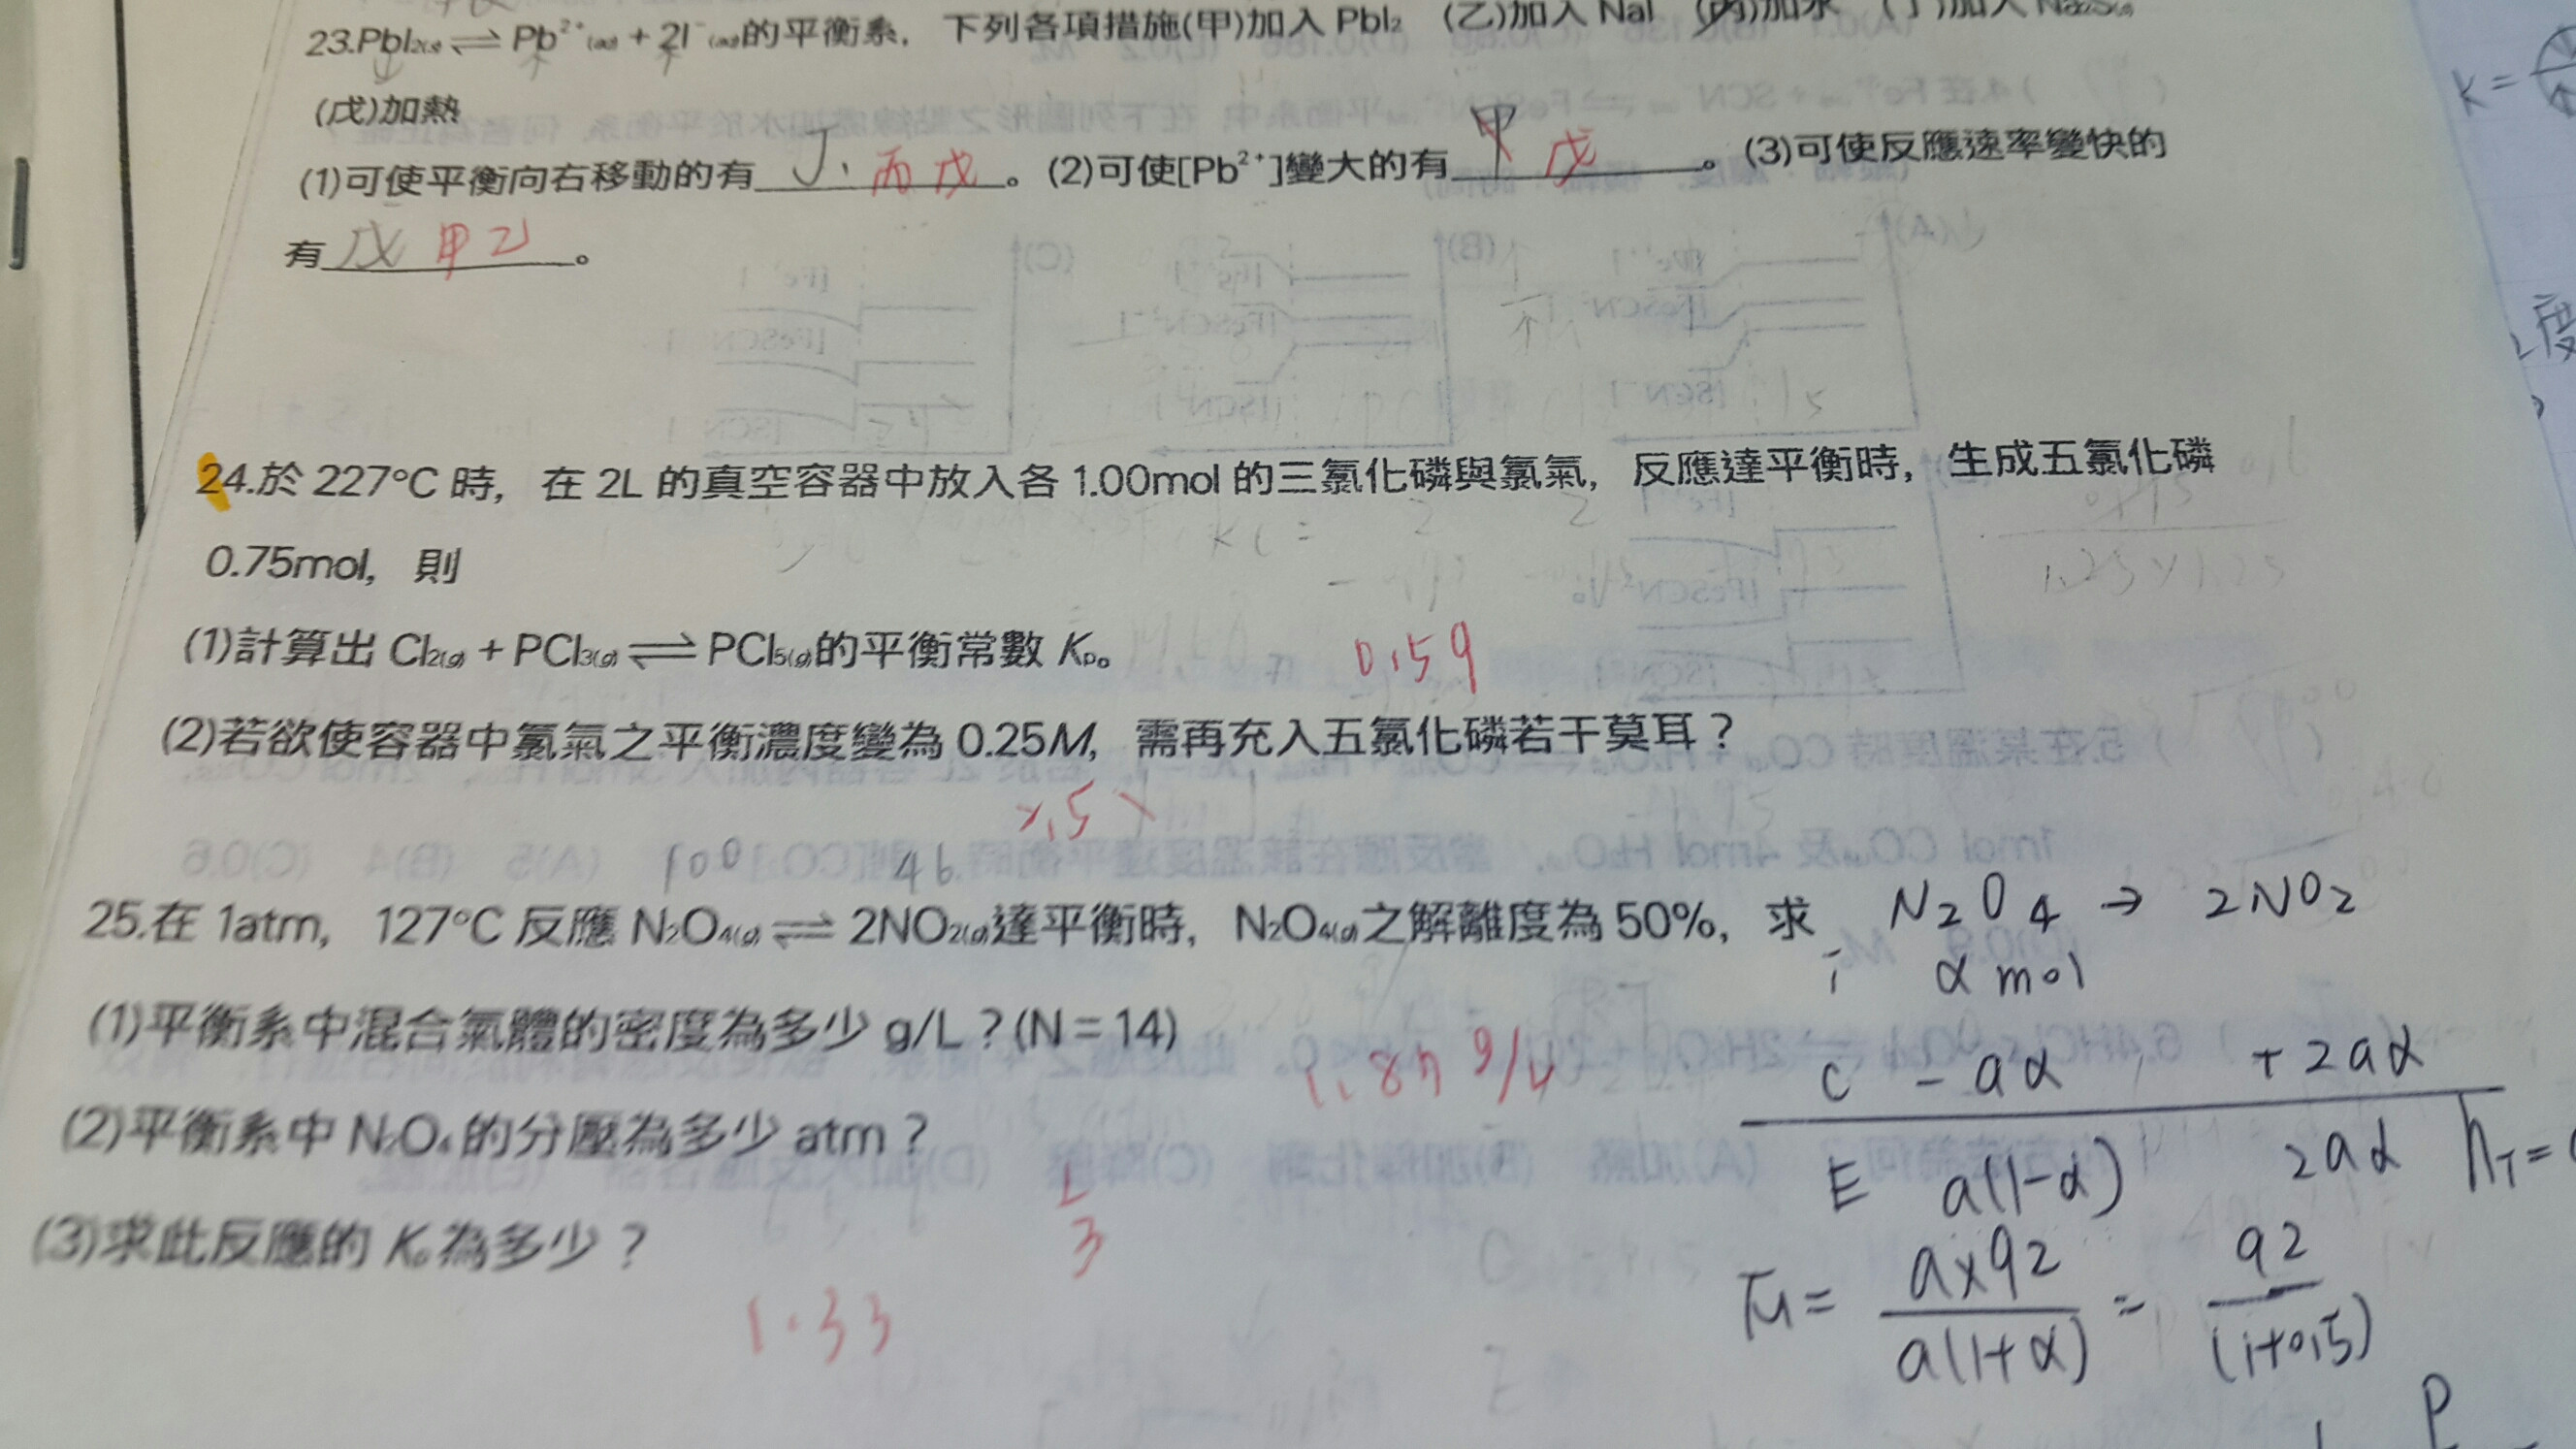 23.PbI₂(s)⇌Pb²⁺(aq)+2I⁻(aq)的平衡系，下列各項措施(甲)加入 PbI₂ (乙)加入 NaI (丙)加水 (丁)加入 Na₂S(s)
(戊)加熱
(1)可使平衡向右移動的有 丁、丙戊。(2)可使[Pb²⁺]變大的有 甲 戊。(3)可使反應速率變快的
有 戊 甲乙。
K=
24.於 227°C 時，在 2L 的真空容器中放入各 1.00mol 的三氯化磷與氯氣，反應達平衡時，生成五氯化磷
0.75mol，則
(1)計算出 Cl₂(g)+PCl₃(g)⇌PCl₅(g)的平衡常數 Kp。 0.59
(2)若欲使容器中氯氣之平衡濃度變為 0.25M，需再充入五氯化磷若干莫耳？
100 46
25.在 1atm，127°C 反應 N₂O₄(g)⇌2NO₂(g)達平衡時，N₂O₄(g)之解離度為 50%，求
(1)平衡系中混合氣體的密度為多少 g/L？(N=14)
(2)平衡系中 N₂O₄ 的分壓為多少 atm？
1/3
(3)求此反應的 Kp 為多少？
1.33
N₂O₄ → 2NO₂
i α mol
C -aα +2aα
E a(1-α) 2aα nT=
M= a×92/a(1+α) = 92/(1+0.5)
P